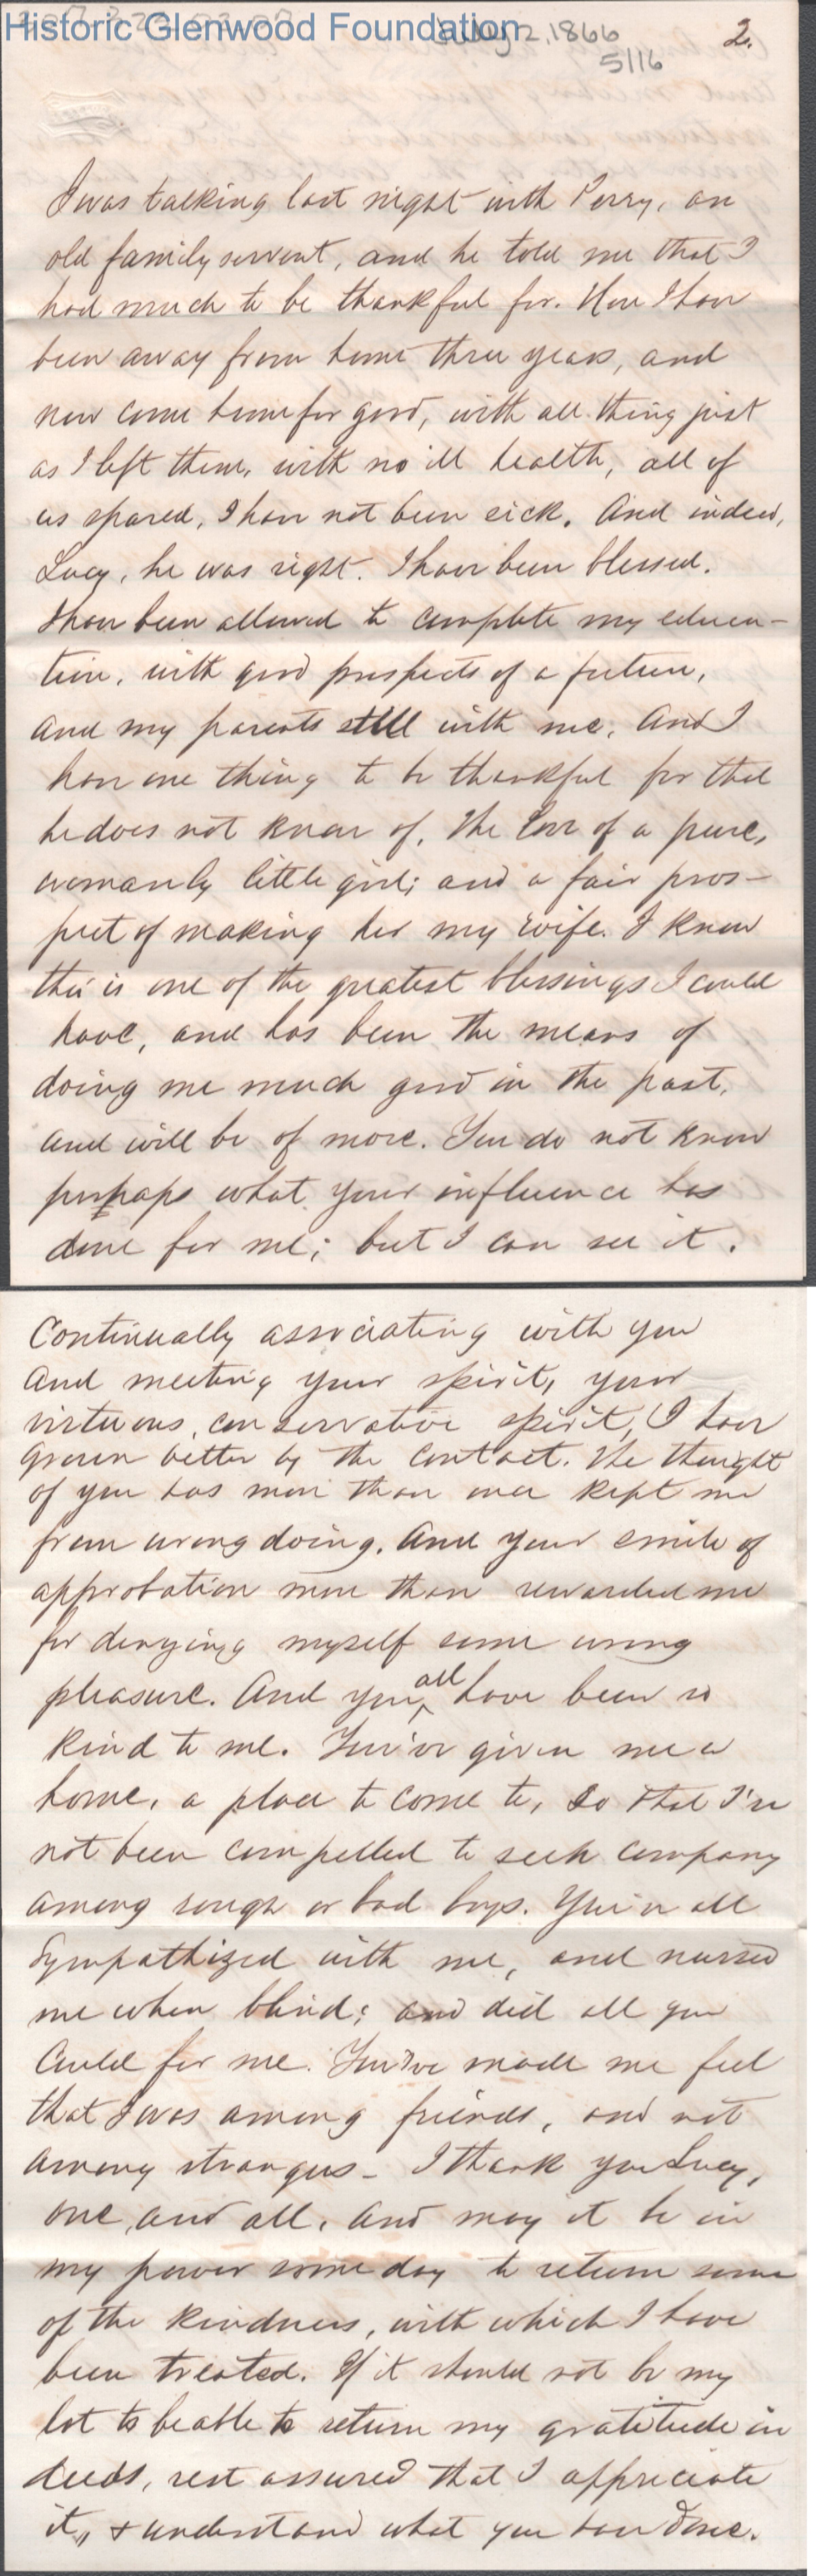 Historic Glenwood Foundation
July 2, 1866
2.
5116
I was talking last night with Perry, an
old family servent, and he told me that I
had much to be thankful for. Here I have
been away from home three years, and
now come home for good, with all thing just
as I left them, with no ill health, all of
us spared, I have not been sick. And indeed,
Lucy, he was right. I have been blessed.
I have been allowed to complete my educa-
tion, with good prospects of a future,
and my parents still with me. And I
have one thing to be thankful for that
he does not know of, the love of a pure,
womanly little girl; and a fair pros-
pect of making her my wife. I know
this is one of the greatest blessings I could
have, and has been the means of
doing me much good in the past,
and will be of more. You do not know
perhaps what your influence has
done for me; but I can see it.
Continually associating with you
and meeting your spirit, your
virtuous, conservative spirit, I have
grown better by the contact. The thought
of you has more than once kept me
from wrong doing. And your smile of
approbation more than rewarded me
for denying myself some wrong
pleasure. And you all have been so
kind to me. You've given me a
home, a place to come to, so that I've
not been compelled to seek company
among rough or bad boys. You've all
sympathized with me, and nursed
me when blind; and did all you
could for me. You've made me feel
that I was among friends, and not
among strangers - I thank you Lucy,
one and all. And may it be in
my power some day to return some
of the kindness, with which I have
been treated. If it should not be my
lot to be able to return my gratitude in
deeds, rest assured that I appreciate
it, & understand what you have done.